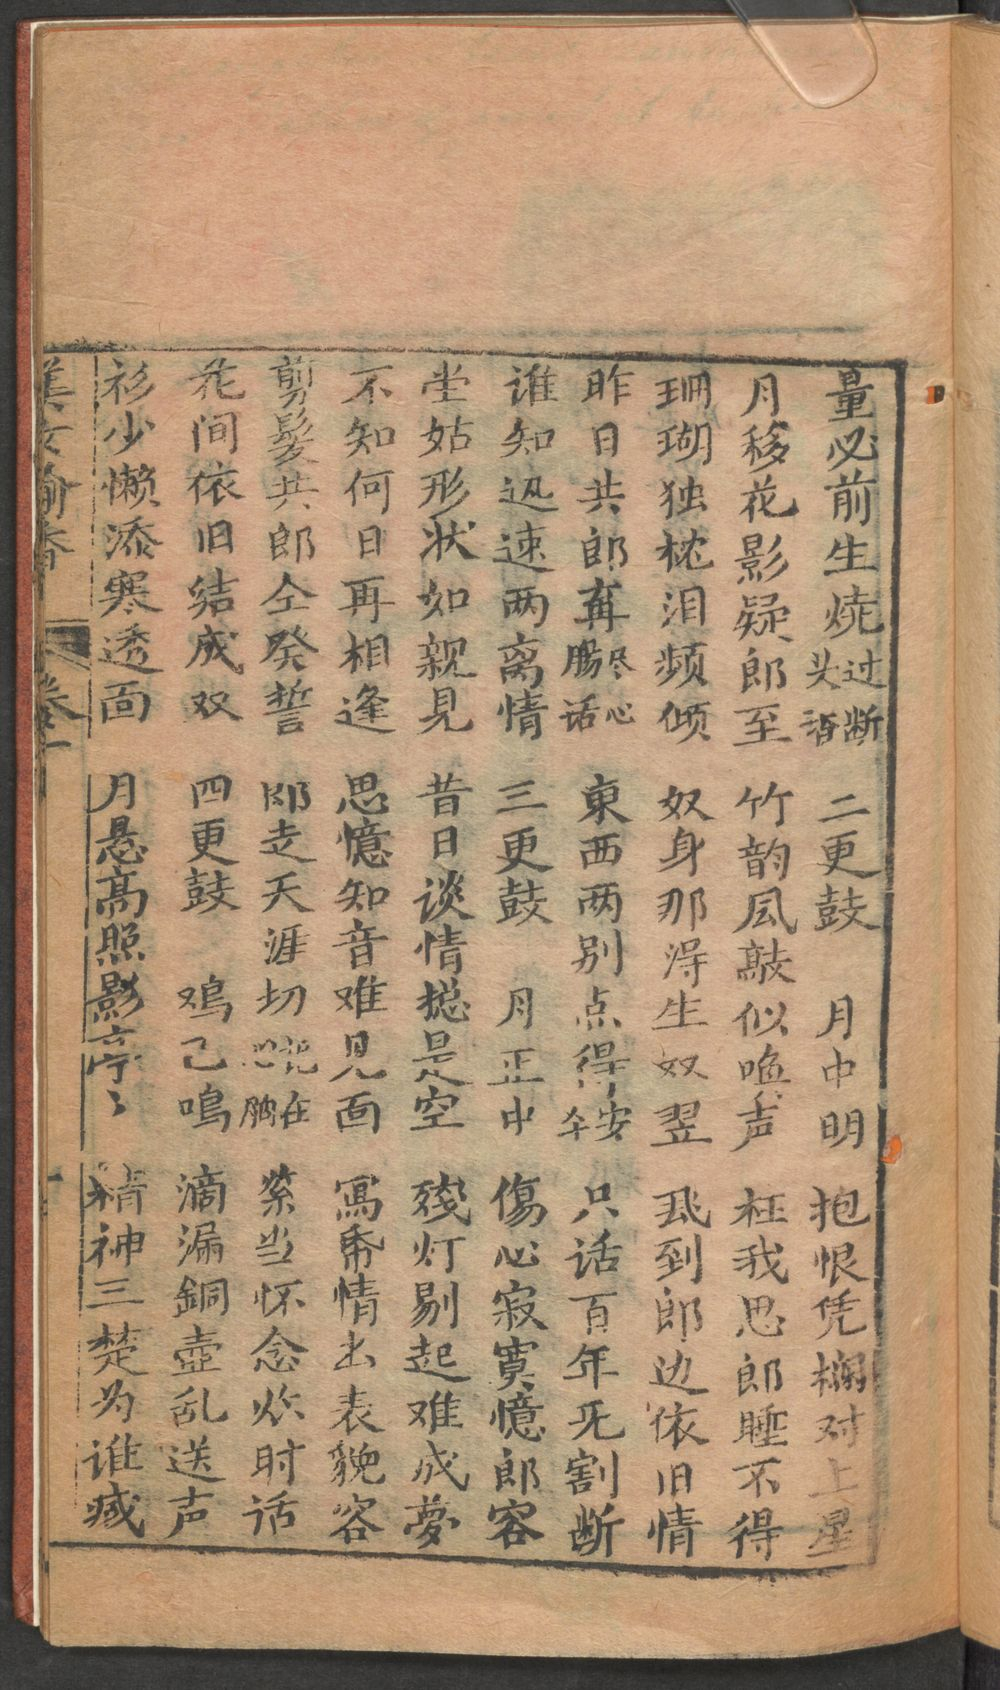 量必前生烧过断头香 二更鼓 月中明 抱恨凭栏对上星
月移花影疑郎至 竹韵风敲似唤声 枉我思郎睡不得
珊瑚独枕泪频倾 奴身那得生奴翌 飛到郎边依旧情
昨日共郎再尽心腸话 東西两别点得安 只话百年旡割断
谁知迅速两离情 三更鼓 月正中 傷心寂寞憶郎容
坐姑形状如親見 昔日谈情摠是空 残灯剔起难成夢
不知何日再相逢 思憶知音难見面 寫番情出表貌容
剪髪共郎仝発誓 郎走天涯切記在胸 索当怀念炊时话
花间依旧结成双 四更鼓 鸡已鳴 滴漏銅壺乱送声
衫少懒添寒透面 月悬高照影亭〻 精神三楚为谁减
美女偷香 卷一